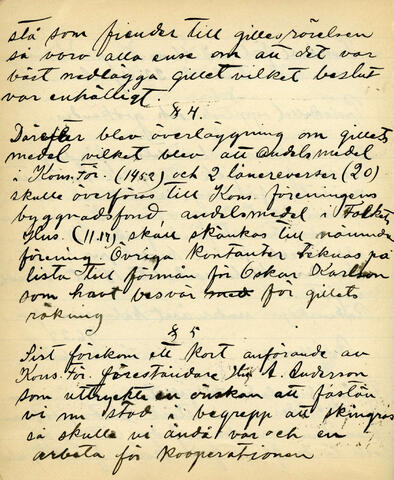 stå som fiender till gillesrörelsen
så voro alla ense om att det var
bäst nedlägga gillet vilket beslut
var enhälligt.
§ 4
Därefter blev överläggning om gillets
medel vilket blev att andelsmedel
i Kons. För. (1452) och 2 lånereverser (20)
skulle överföras till Kons. föreningens
byggnadsfond, andelsmedel i Folkets
Hus (11.17) skall skänkas till nämnda
förening. Övriga kontanter teknas på
lista till förmån för Oskar Karlsson
som havt besvär med för gillets
räkning
§ 5
Sist förekom ett kort anförande av
Kons. För. föreståndare A. Anderson
som uttryckte en önskan att fastän
vi nu stod i begrepp att skingras
så skulle vi ändå var och en
arbeta för Kooperationen